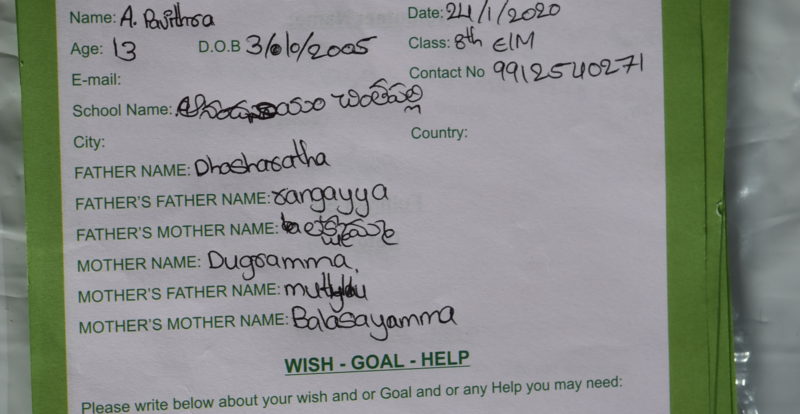 Name: A. Pavithra Date: 24/1/2020
Age: 13 D.O.B 3/6/2005 Class: 8th E/M
E-mail: Contact No 9912540271
School Name: చింతపల్లి
City: Country:
FATHER NAME: Dhasharatha
FATHER'S FATHER NAME: rangayya
FATHER'S MOTHER NAME: లక్ష్మమ్మ
MOTHER NAME: Dugramma,
MOTHER'S FATHER NAME:
MOTHER'S MOTHER NAME: Balasayamma
WISH - GOAL - HELP
Please write below about your wish and or Goal and or any Help you may need: